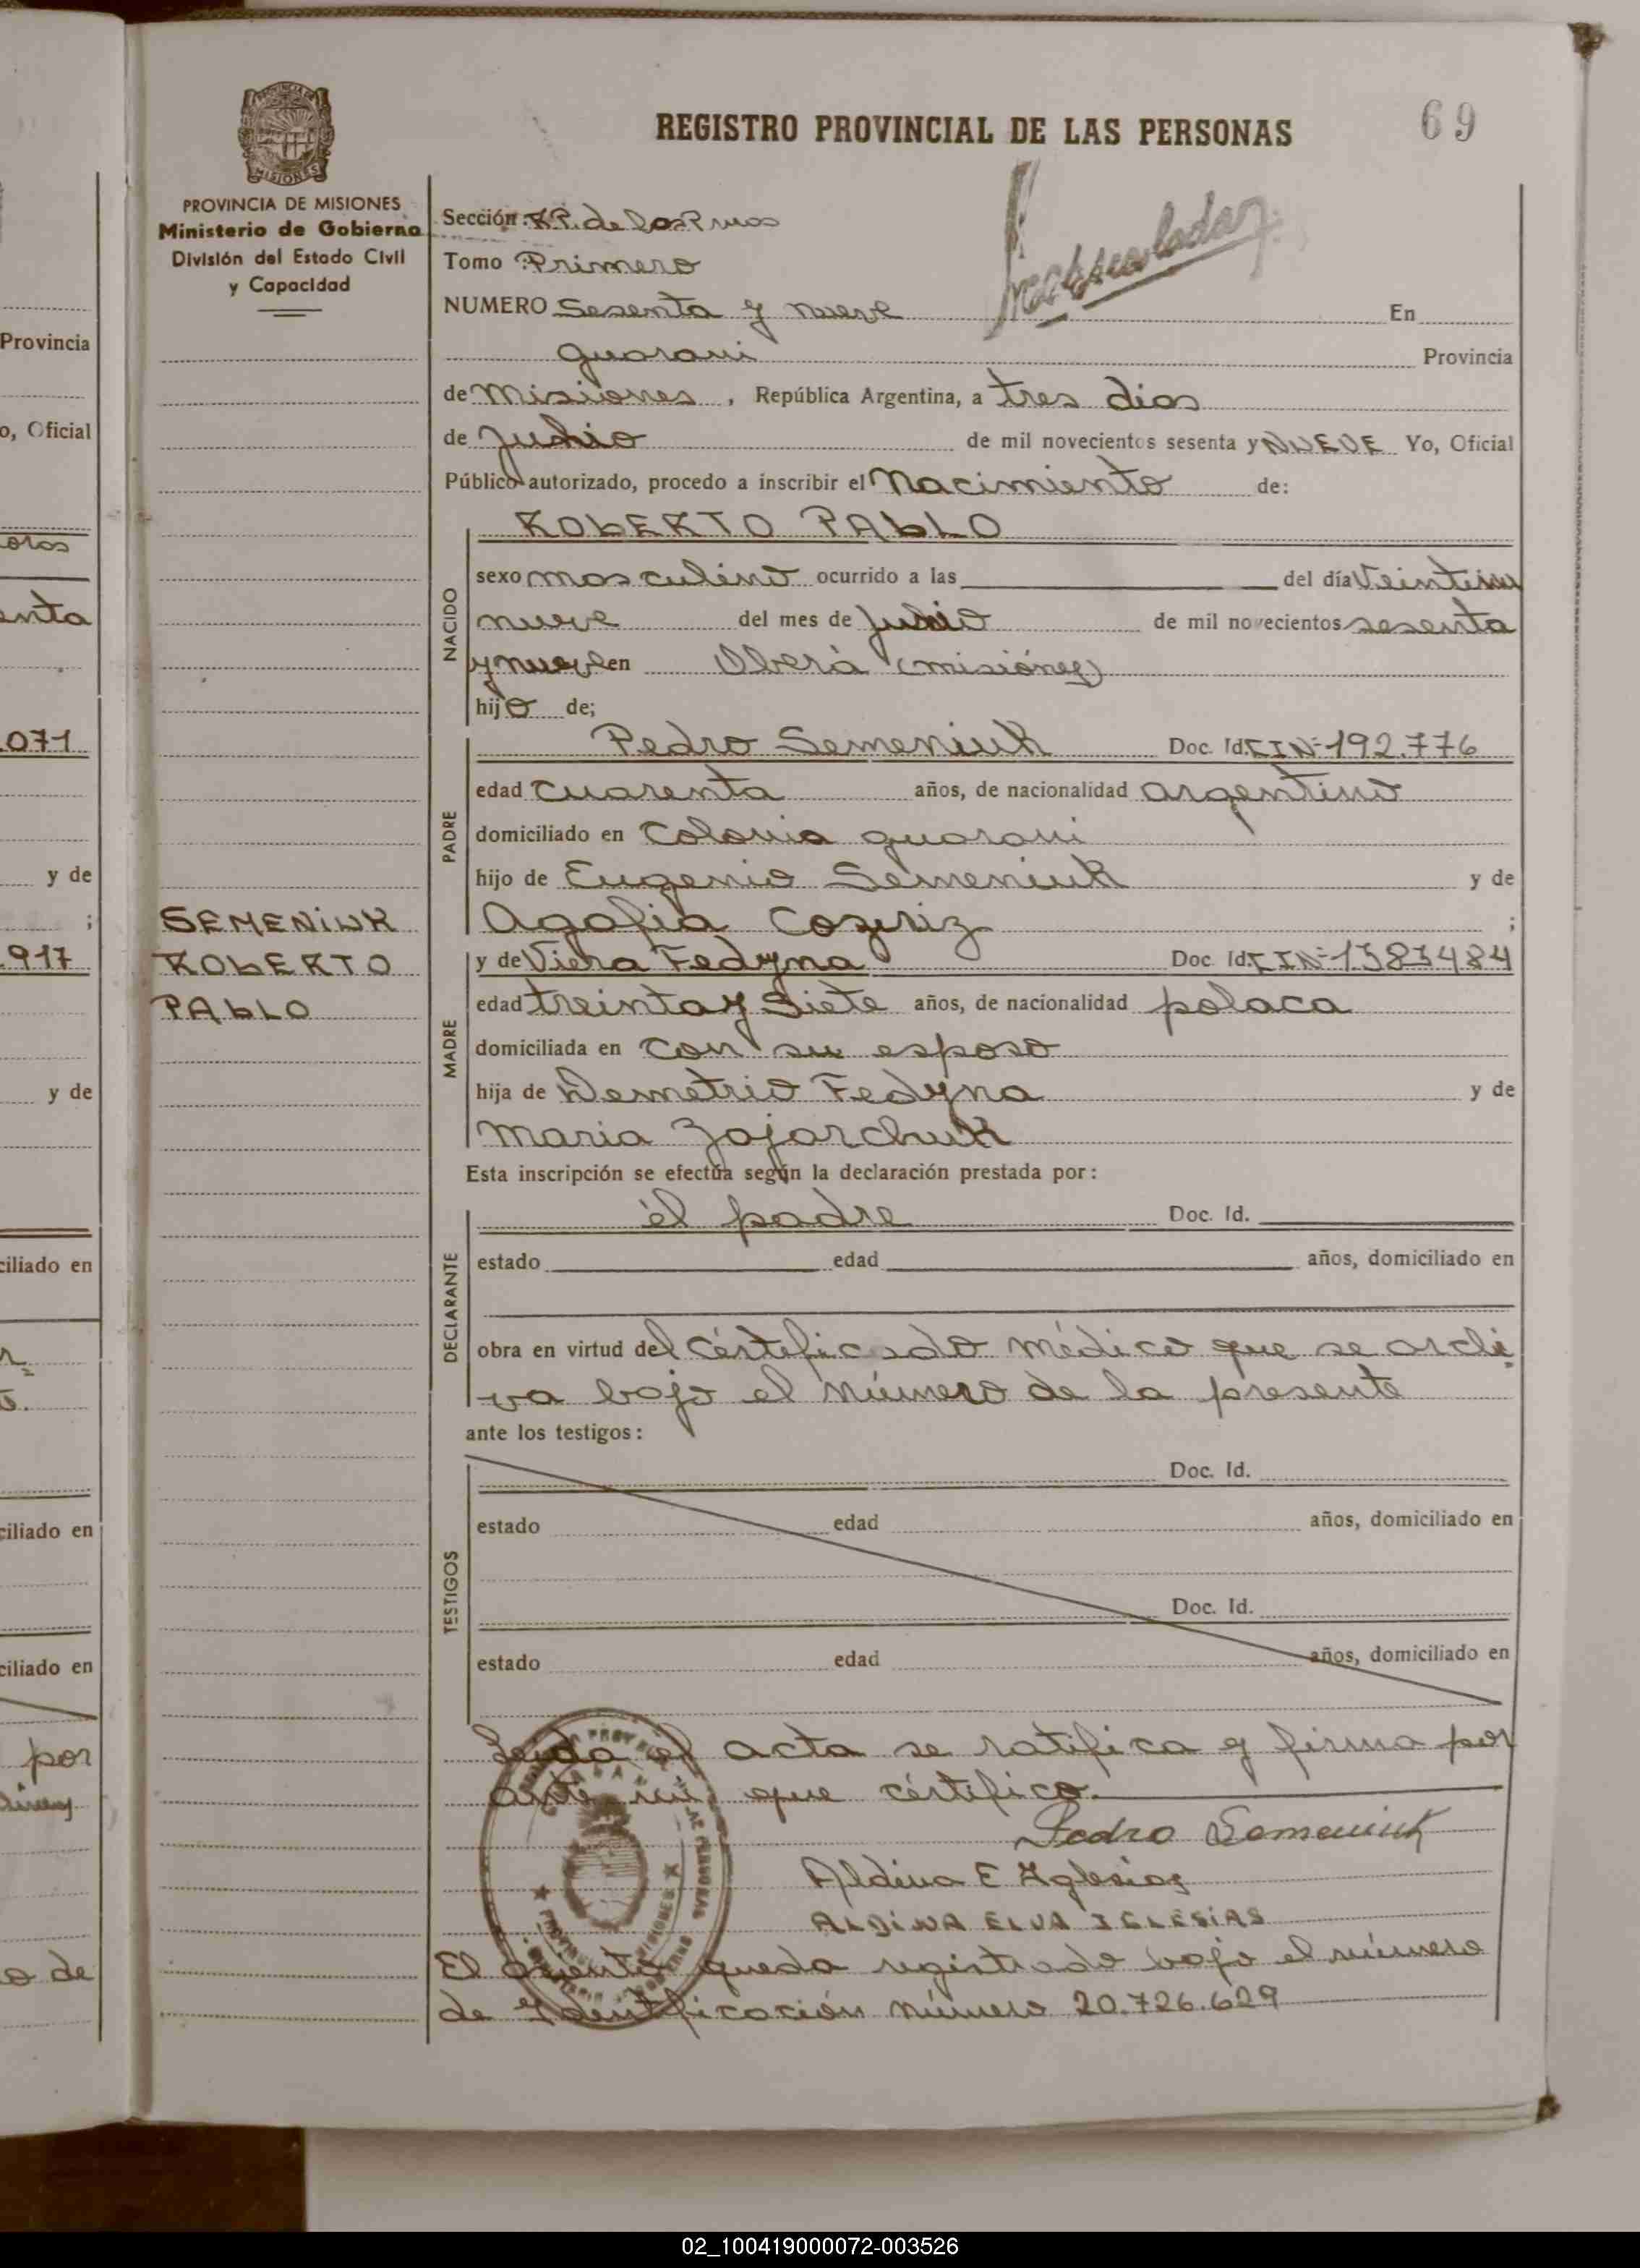 REGISTRO PROVINCIAL DE LAS PERSONAS
69
PROVINCIA DE MISIONES
Ministerio de Gobierno
División del Estado Civil
y Capacidad
Sección: R.P. de las P
Tomo Primero
NUMERO Sesenta y nueve En
guarani Provincia
de Misiones, República Argentina, a tres dias
de de mil novecientos sesenta y NUEVE Yo, Oficial
Público autorizado, procedo a inscribir el Nacimiento de:
ROBERTO PABLO
NACIDO
sexo masculino ocurrido a las del día Veinti
nueve del mes de de mil novecientos sesenta
y nueve en Oberá (misiónes)
hijo de;
PADRE
Pedro Semeniuk Doc. Id. C I Nº 192.776
edad cuarenta años, de nacionalidad argentino
domiciliado en Colonia guarani
hijo de Eugenio Semeniuk y de
Agafia ;
SEMENIUK
ROBERTO
PABLO
MADRE
y de Viera Fedyna Doc. Id. C I Nº
edad treinta y siete años, de nacionalidad polaca
domiciliada en con su esposo
hija de Demetrio Fedyna y de
Maria Zajarchuk
Esta inscripción se efectúa según la declaración prestada por:
DECLARANTE
él padre Doc. Id.
estado edad años, domiciliado en
obra en virtud del cértificado médico que se archi
va bajo el número de la presente
ante los testigos:
TESTIGOS
Doc. Id.
estado edad años, domiciliado en
Doc. Id.
estado edad años, domiciliado en
Leida el acta se ratifica y firma por
ante mi, que cértifico.
Pedro Semeniuk
Aldina E Iglesias
ALDINA ELVA IGLESIAS
El asiento queda registrado bajo el número
de Identificación número 20.726.629
Provincia
o, Oficial
enta
.071
y de
;
.917
y de
ciliado en
ciliado en
ciliado en
por
o de
02_100419000072-003526